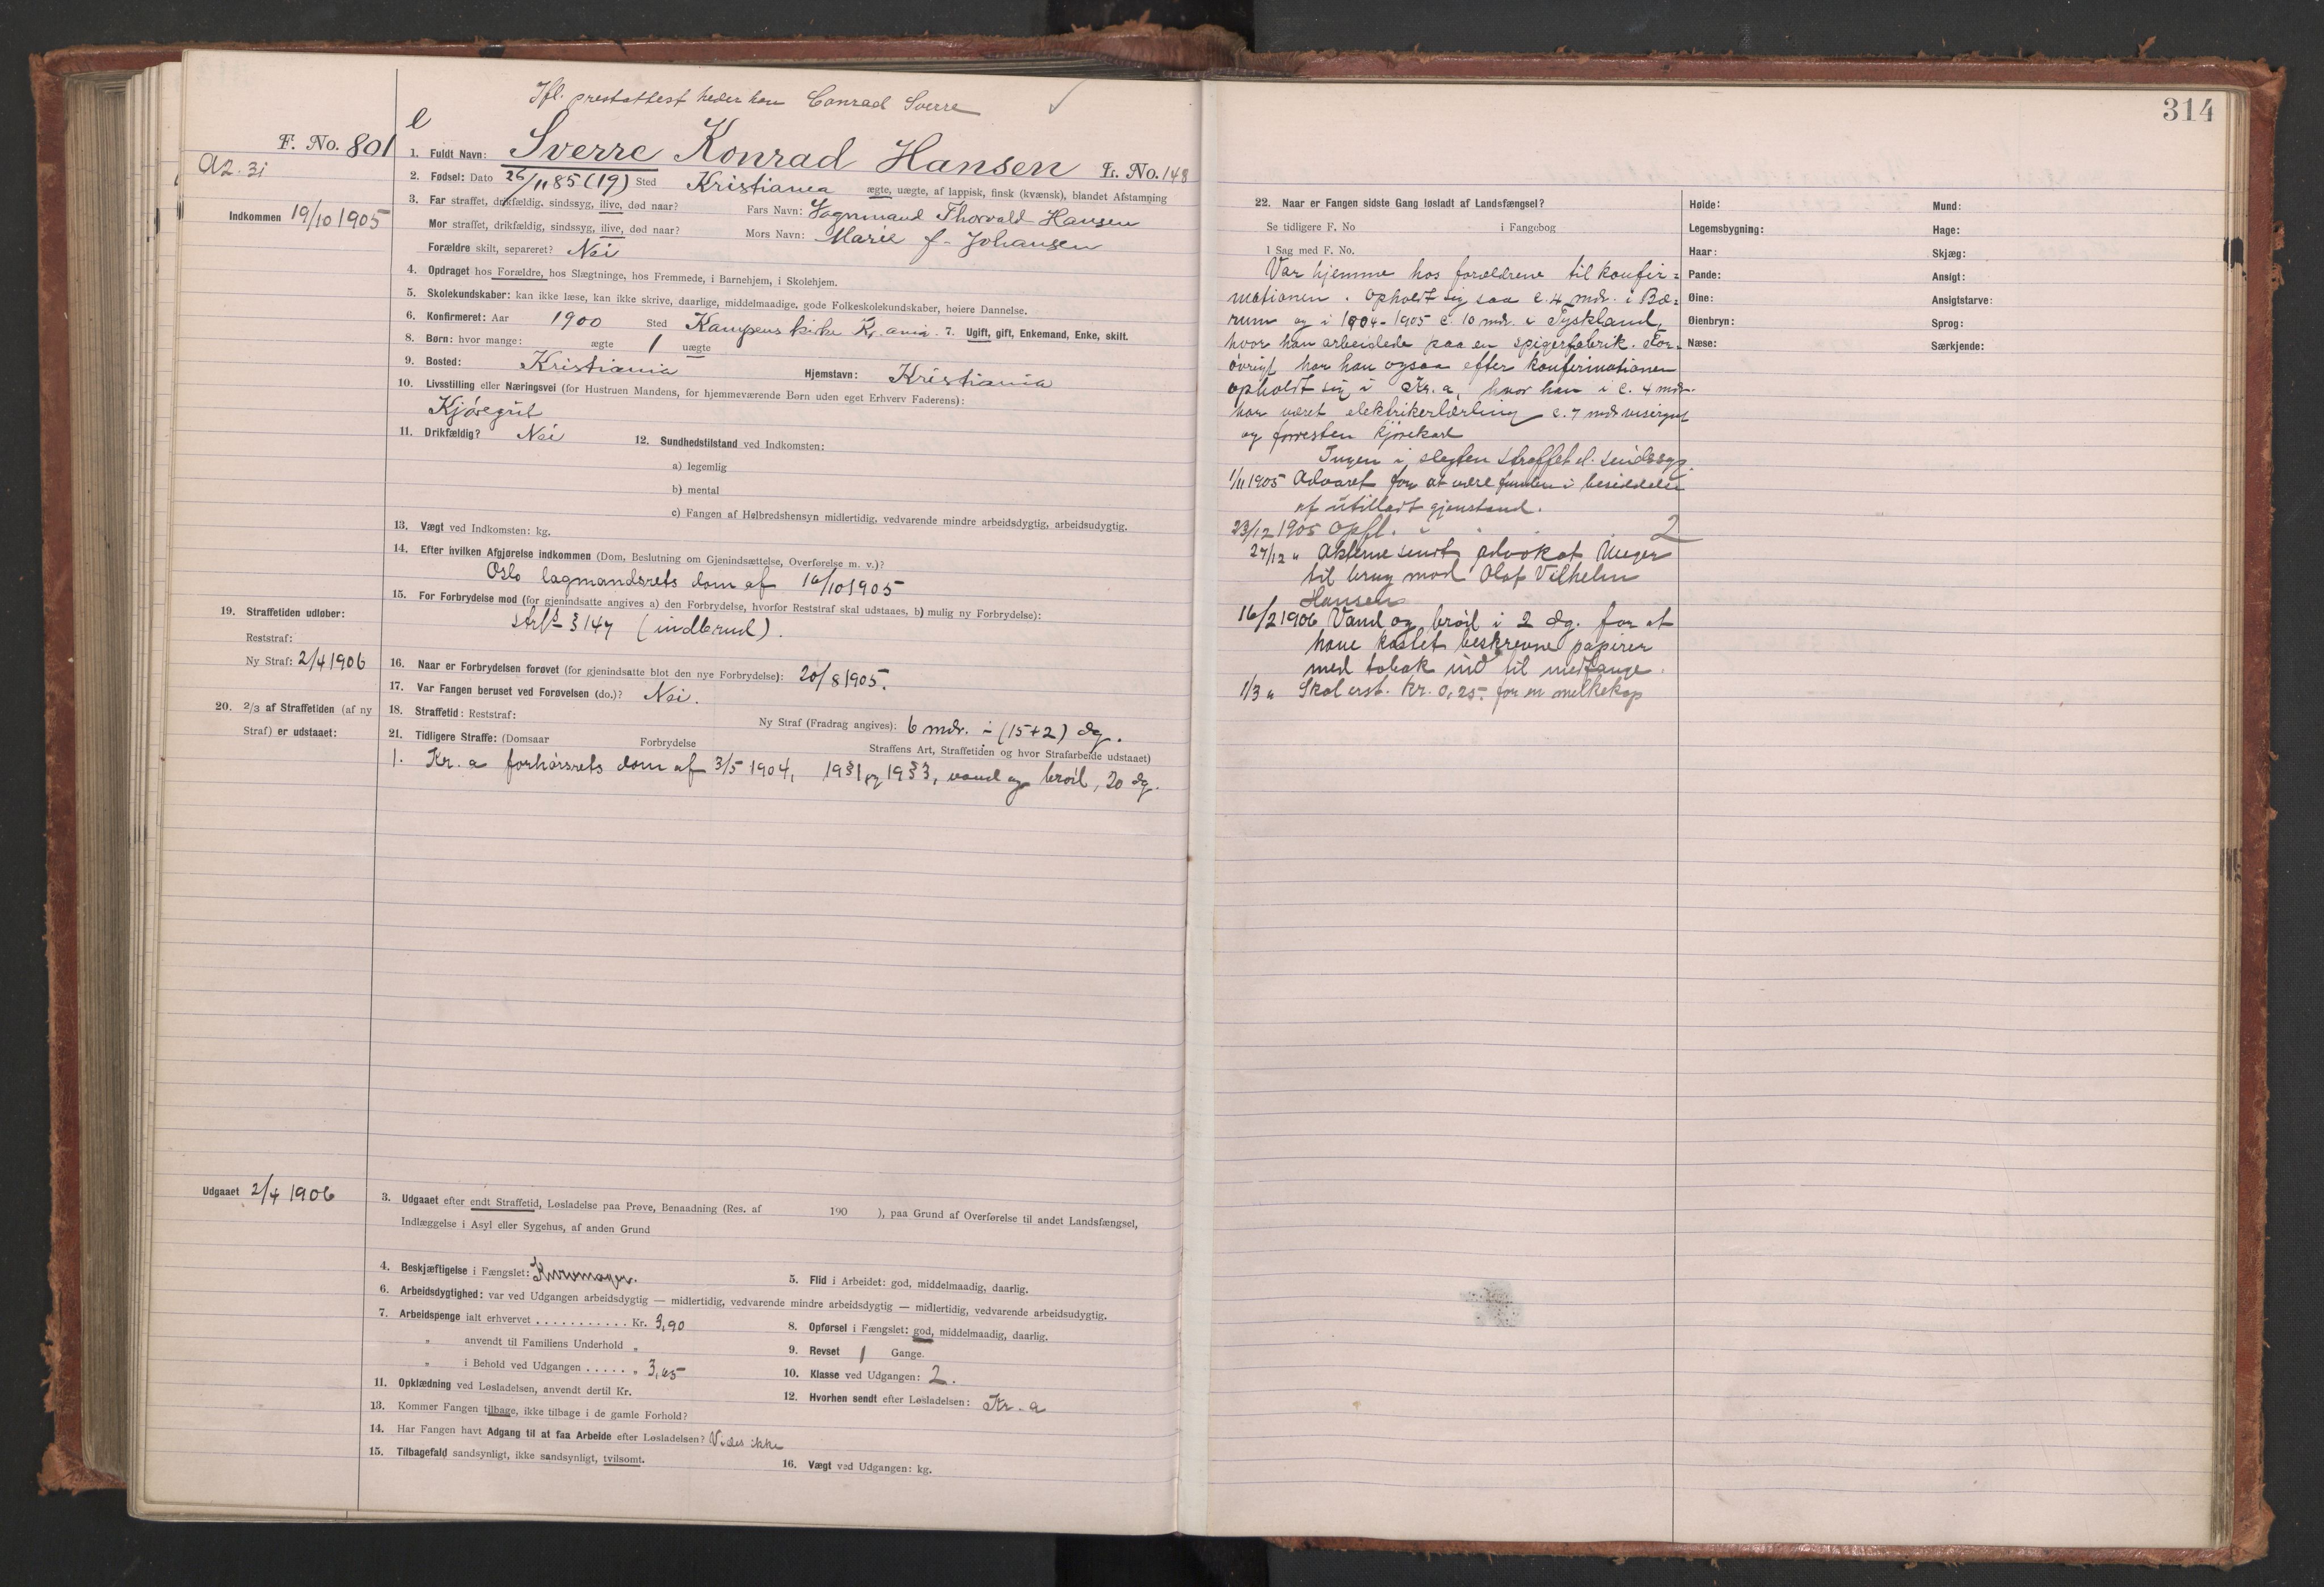 Ifl. prestattest heder han Conrad Sverre
e
F. No. 801
A2. 31
1. Fuldt Navn: Sverre Konrad Hansen L. No. 148
2. Fødsel: Dato 26/11 85 (19) Sted Kristiania ægte, uægte, af lappisk, finsk (kvænsk), blandet Afstamning
Indkommen 19/10 1905
3. Far straffet, drikfældig, sindssyg, ilive, død naar? Fars Navn: Vognmand Thorvald Hansen
Mor straffet, drikfældig, sindssyg, ilive, død naar? Mors Navn: Marie f. Johansen
Forældre skilt, separeret? Nei
4. Opdraget hos Forældre, hos Slægtninge, hos Fremmede, i Barnehjem, i Skolehjem.
5. Skolekundskaber: kan ikke læse, kan ikke skrive, daarlige, middelmaadige, gode Folkeskolekundskaber, høiere Dannelse.
6. Konfirmeret: Aar 1900 Sted Kampens kirke Kr.ania. 7. Ugift, gift, Enkemand, Enke, skilt.
8. Børn: hvor mange: ægte 1 uægte
9. Bosted: Kristiania Hjemstavn: Kristiania
10. Livsstilling eller Næringsvei (for Hustruen Mandens, for hjemmeværende Børn uden eget Erhverv Faderens):
Kjøregut
11. Drikfældig? Nei 12. Sundhedstilstand ved Indkomsten:
a) legemlig
b) mental
c) Fangen af Helbredshensyn midlertidig, vedvarende mindre arbeidsdygtig, arbeidsudygtig.
13. Vægt ved Indkomsten: kg.
14. Efter hvilken Afgjørelse indkommen (Dom, Beslutning om Gjenindsættelse, Overførelse m. v.)?
Oslo lagmandsrets dom af 16/10 1905
15. For Forbrydelse mod (for gjenindsatte angives a) den Forbrydelse, hvorfor Reststraf skal udstaaes, b) mulig ny Forbrydelse):
strfl § 147 (indbrud).
19. Straffetiden udløber:
Reststraf:
Ny Straf: 2/4 1906
16. Naar er Forbrydelsen forøvet (for gjenindsatte blot den nye Forbrydelse): 20/8 1905.
17. Var Fangen beruset ved Forøvelsen (do.)? Nei.
20. 2/3 af Straffetiden (af ny
Straf) er udstaaet:
18. Straffetid: Reststraf: Ny Straf (Fradrag angives): 6 mdr. ÷ (15+2) dg.
21. Tidligere Straffe: (Domsaar Forbrydelse Straffens Art, Straffetiden og hvor Strafarbeide udstaaet)
1. Kr. a forhørsrets dom af 3/5 1904, 19 § 1 og 19 § 3, vand og brød, 20 dg.
Udgaaet 2/4 1906
3. Udgaaet efter endt Straffetid, Løsladelse paa Prøve, Benaadning (Res. af 190 ), paa Grund af Overførelse til andet Landsfængsel,
Indlæggelse i Asyl eller Sygehus, af anden Grund
4. Beskjæftigelse i Fængslet: Kurvmager.
5. Flid i Arbeidet: god, middelmaadig, daarlig.
6. Arbeidsdygtighed: var ved Udgangen arbeidsdygtig — midlertidig, vedvarende mindre arbeidsdygtig — midlertidig, vedvarende arbeidsudygtig.
7. Arbeidspenge ialt erhvervet . . . . . . . . . . . Kr. 3,90
8. Opførsel i Fængslet: god, middelmaadig, daarlig.
" anvendt til Familiens Underhold "
9. Revset 1 Gange.
" i Behold ved Udgangen . . . . . " 3,65
10. Klasse ved Udgangen: 2.
11. Opklædning ved Løsladelsen, anvendt dertil Kr.
12. Hvorhen sendt efter Løsladelsen: Kr. a
13. Kommer Fangen tilbage, ikke tilbage i de gamle Forhold?
14. Har Fangen havt Adgang til at faa Arbeide efter Løsladelsen? Vides ikke
15. Tilbagefald sandsynligt, ikke sandsynligt, tvilsomt.
16. Vægt ved Udgangen: kg.
314
22. Naar er Fangen sidste Gang løsladt af Landsfængsel?
Se tidligere F. No i Fangebog
I Sag med F. No.
Var hjemme hos forældrene til konfir=
mationen. Opholdt sig saa c. 4 mdr. i Bæ=
rum og i 1904-1905 c. 10 mdr. i Tyskland,
hvor han arbeidede paa en spigerfabrik. For=
øvrigt har han ogsaa efter konfirmationen
opholdt sig i Kr. a, hvor han i c. 4 mdr.
har været elektrikerlærling c. 7 mdr visergut
og forresten kjørekarl
Ingen i slegten straffet el. sindssyg.
1/11 1905 Advaret for at være funden i besiddelse
af utilladt gjenstand.
23/12 1905 Opfl. 2
27/12 " Akterne sendt advokat Unger
til brug mod Olaf Vilhelm
Hansen
16/2 1906 Vand og brød i 2 dg. for at
have kastet beskrevne papirer
med tobak ind til medfange.
1/3 " Skal erst. Kr. 0,25 for en melkekop
Høide:
Legemsbygning:
Haar:
Pande:
Øine:
Øienbryn:
Næse:
Mund:
Hage:
Skjæg:
Ansigt:
Ansigtsfarve:
Sprog:
Særkjende: